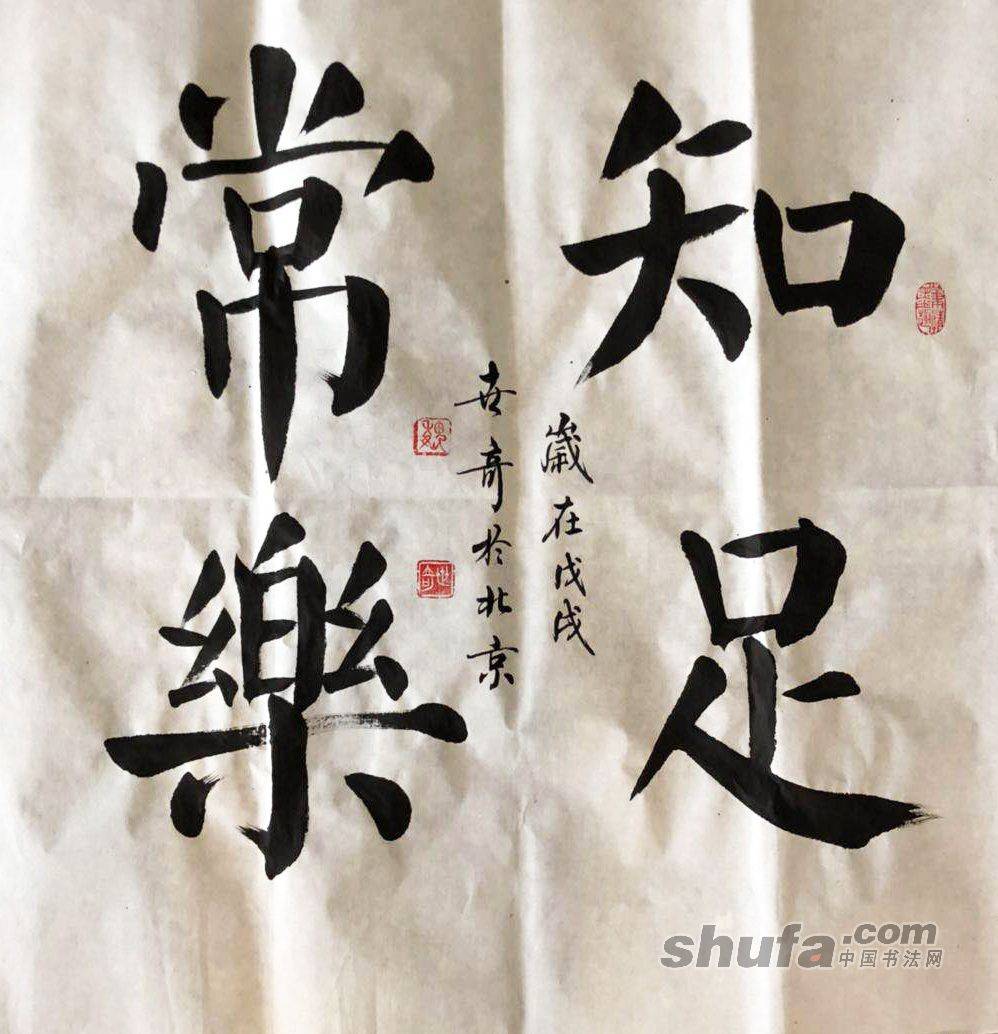 知足
常樂
歲在戊戌
世奇於北京
魏
世奇
shufa.com
中国书法网